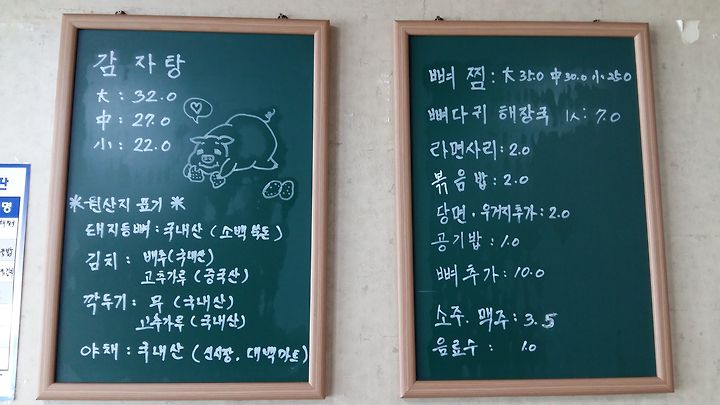 감자탕
大 : 32.0
中 : 27.0
小 : 22.0
※원산지 표기※
돼지등뼈 : 국내산 (소백
김치 : 배추(국내산)
고추가루 (중국산)
깍두기 : 무 (국내산)
고추가루 (국내산)
야채 : 국내산 (신시장, 대백마트)
뼈 찜 : 大 35.0 中 30.0 小 25.0
뼈다귀 해장국 1人 : 7.0
라면사리 : 2.0
볶음밥 : 2.0
당면 · 우거지추가 : 2.0
공기밥 : 1.0
뼈추가 : 10.0
소주. 맥주 : 3.5
음료수 : 1.0
명